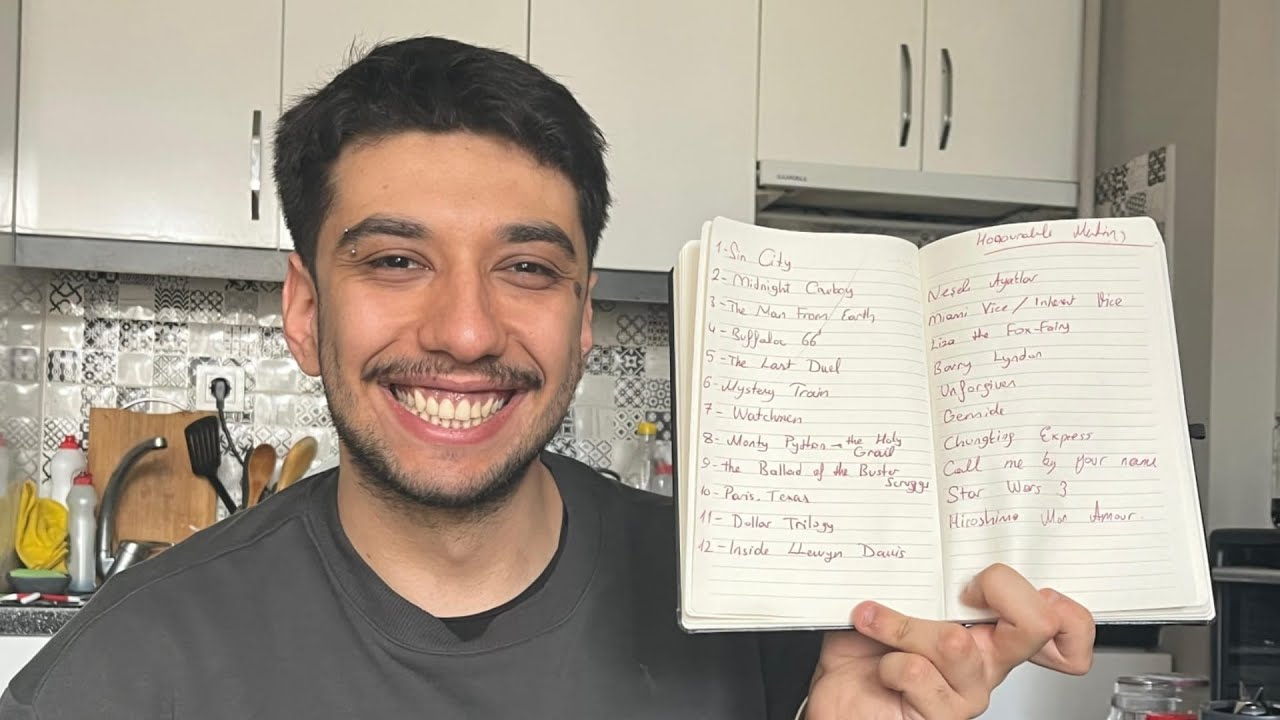 1- Sin City
2- Midnight Cowboy
3- The Man From Earth
4- Buffalo 66
5- The Last Duel
6- Mystery Train
7- Watchmen
8- Monty Python → the Holy
Grail
9- the Ballad of the Buster
Scruggs
10- Paris, Texas
11- Dollar Trilogy
12- Inside Llewyn Davis
Honourable
Neşeli Ayaklar
Miami Vice / Inherent Vice
Liza the Fox-Fairy
Barry Lyndon
Unforgiven
Chungking Express
Call me by your name
Star Wars 3
Hiroshima Mon Amour.